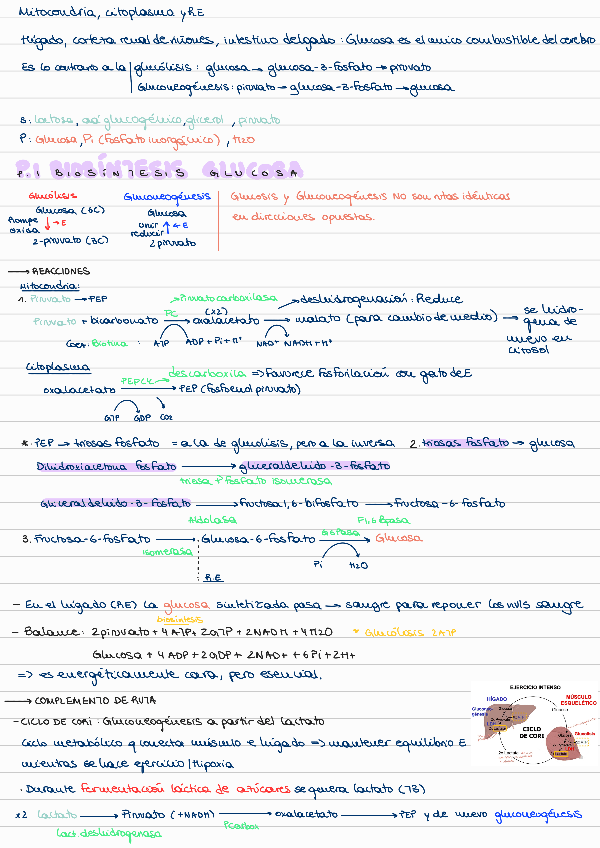 Mitocondria, citoplasma y RE
Hígado, corteza renal de riñones, intestino delgado : Glucosa es el único combustible del cerebro
Es lo contrario a la glucólisis : glucosa → glucosa-3-fosfato → piruvato
Gluconeogénesis : piruvato → glucosa-3-fosfato → glucosa
S: lactosa, aá glucogénico, glicerol , piruvato
P: Glucosa, Pi (fosfato inorgánico) , H2O
P.1 BIOSÍNTESIS GLUCOSA
Glucólisis
Glucosa (6C)
Rompe
oxida
→ E
2-piruvato (3C)
Gluconeogénesis
Glucosa
unir
reducir
← E
2 piruvato
Glucosis y Gluconeogénesis NO son rutas idénticas
en direcciones opuestas.
→ REACCIONES
Mitocondria:
1. Piruvato → PEP
Piruvato carboxilasa
deshidrogenación : Reduce
Piruvato + bicarbonato PC → oxalacetato (x2) → malato (para cambio de medio) → se hidro-
gena de
nuevo en
citosol
Coez: Biotina : ATP ADP + Pi + H+ NAD+ NADH + H+
Citoplasma
descarboxila => Favorece fosforilación con gasto de E
oxalacetato PEPCK → PEP (fosfoenol piruvato)
GTP GDP CO2
*. PEP → triosas fosfato = a la de glucólisis, pero a la inversa 2. triosas fosfato → glucosa
Dihidroxiacetona fosfato → gliceraldehido-3-fosfato
triosa P fosfato isomerasa
Gliceraldehido-3-fosfato → Fructosa 1,6-bifosfato → Fructosa-6-fosfato
Aldolasa F1,6 Bpasa
3. Fructosa-6-fosfato → Glucosa-6-fosfato G6Pasa → Glucosa
isomerasa
Pi H2O
R.E
- En el hígado (RE) la glucosa sintetizada pasa → sangre para reponer los nvls sangre
biosíntesis
- Balance: 2 piruvato + 4 ATP + 2 GTP + 2 NADH + 4 H2O * Glucólisis 2 ATP
Glucosa + 4 ADP + 2 GDP + 2 NAD+ + 6 Pi + 2H+
=> es energéticamente cara, pero esencial.
→ COMPLEMENTO DE RUTA
- CICLO DE CORI : Gluconeogénesis a partir del lactato
Ciclo metabólico q conecta músculo e hígado => mantener equilibrio E
mientras se hace ejercicio / Hipoxia
EJERCICIO INTENSO
HÍGADO
MÚSCULO
ESQUELÉTICO
CICLO
DE CORI
· Durante fermentación láctica de azúcares se genera lactato (TB)
x2 Lactato → Piruvato (+NADH) → oxalacetato → PEP y de nuevo gluconeogénesis
Lact. deshidrogenasa Pcarbox